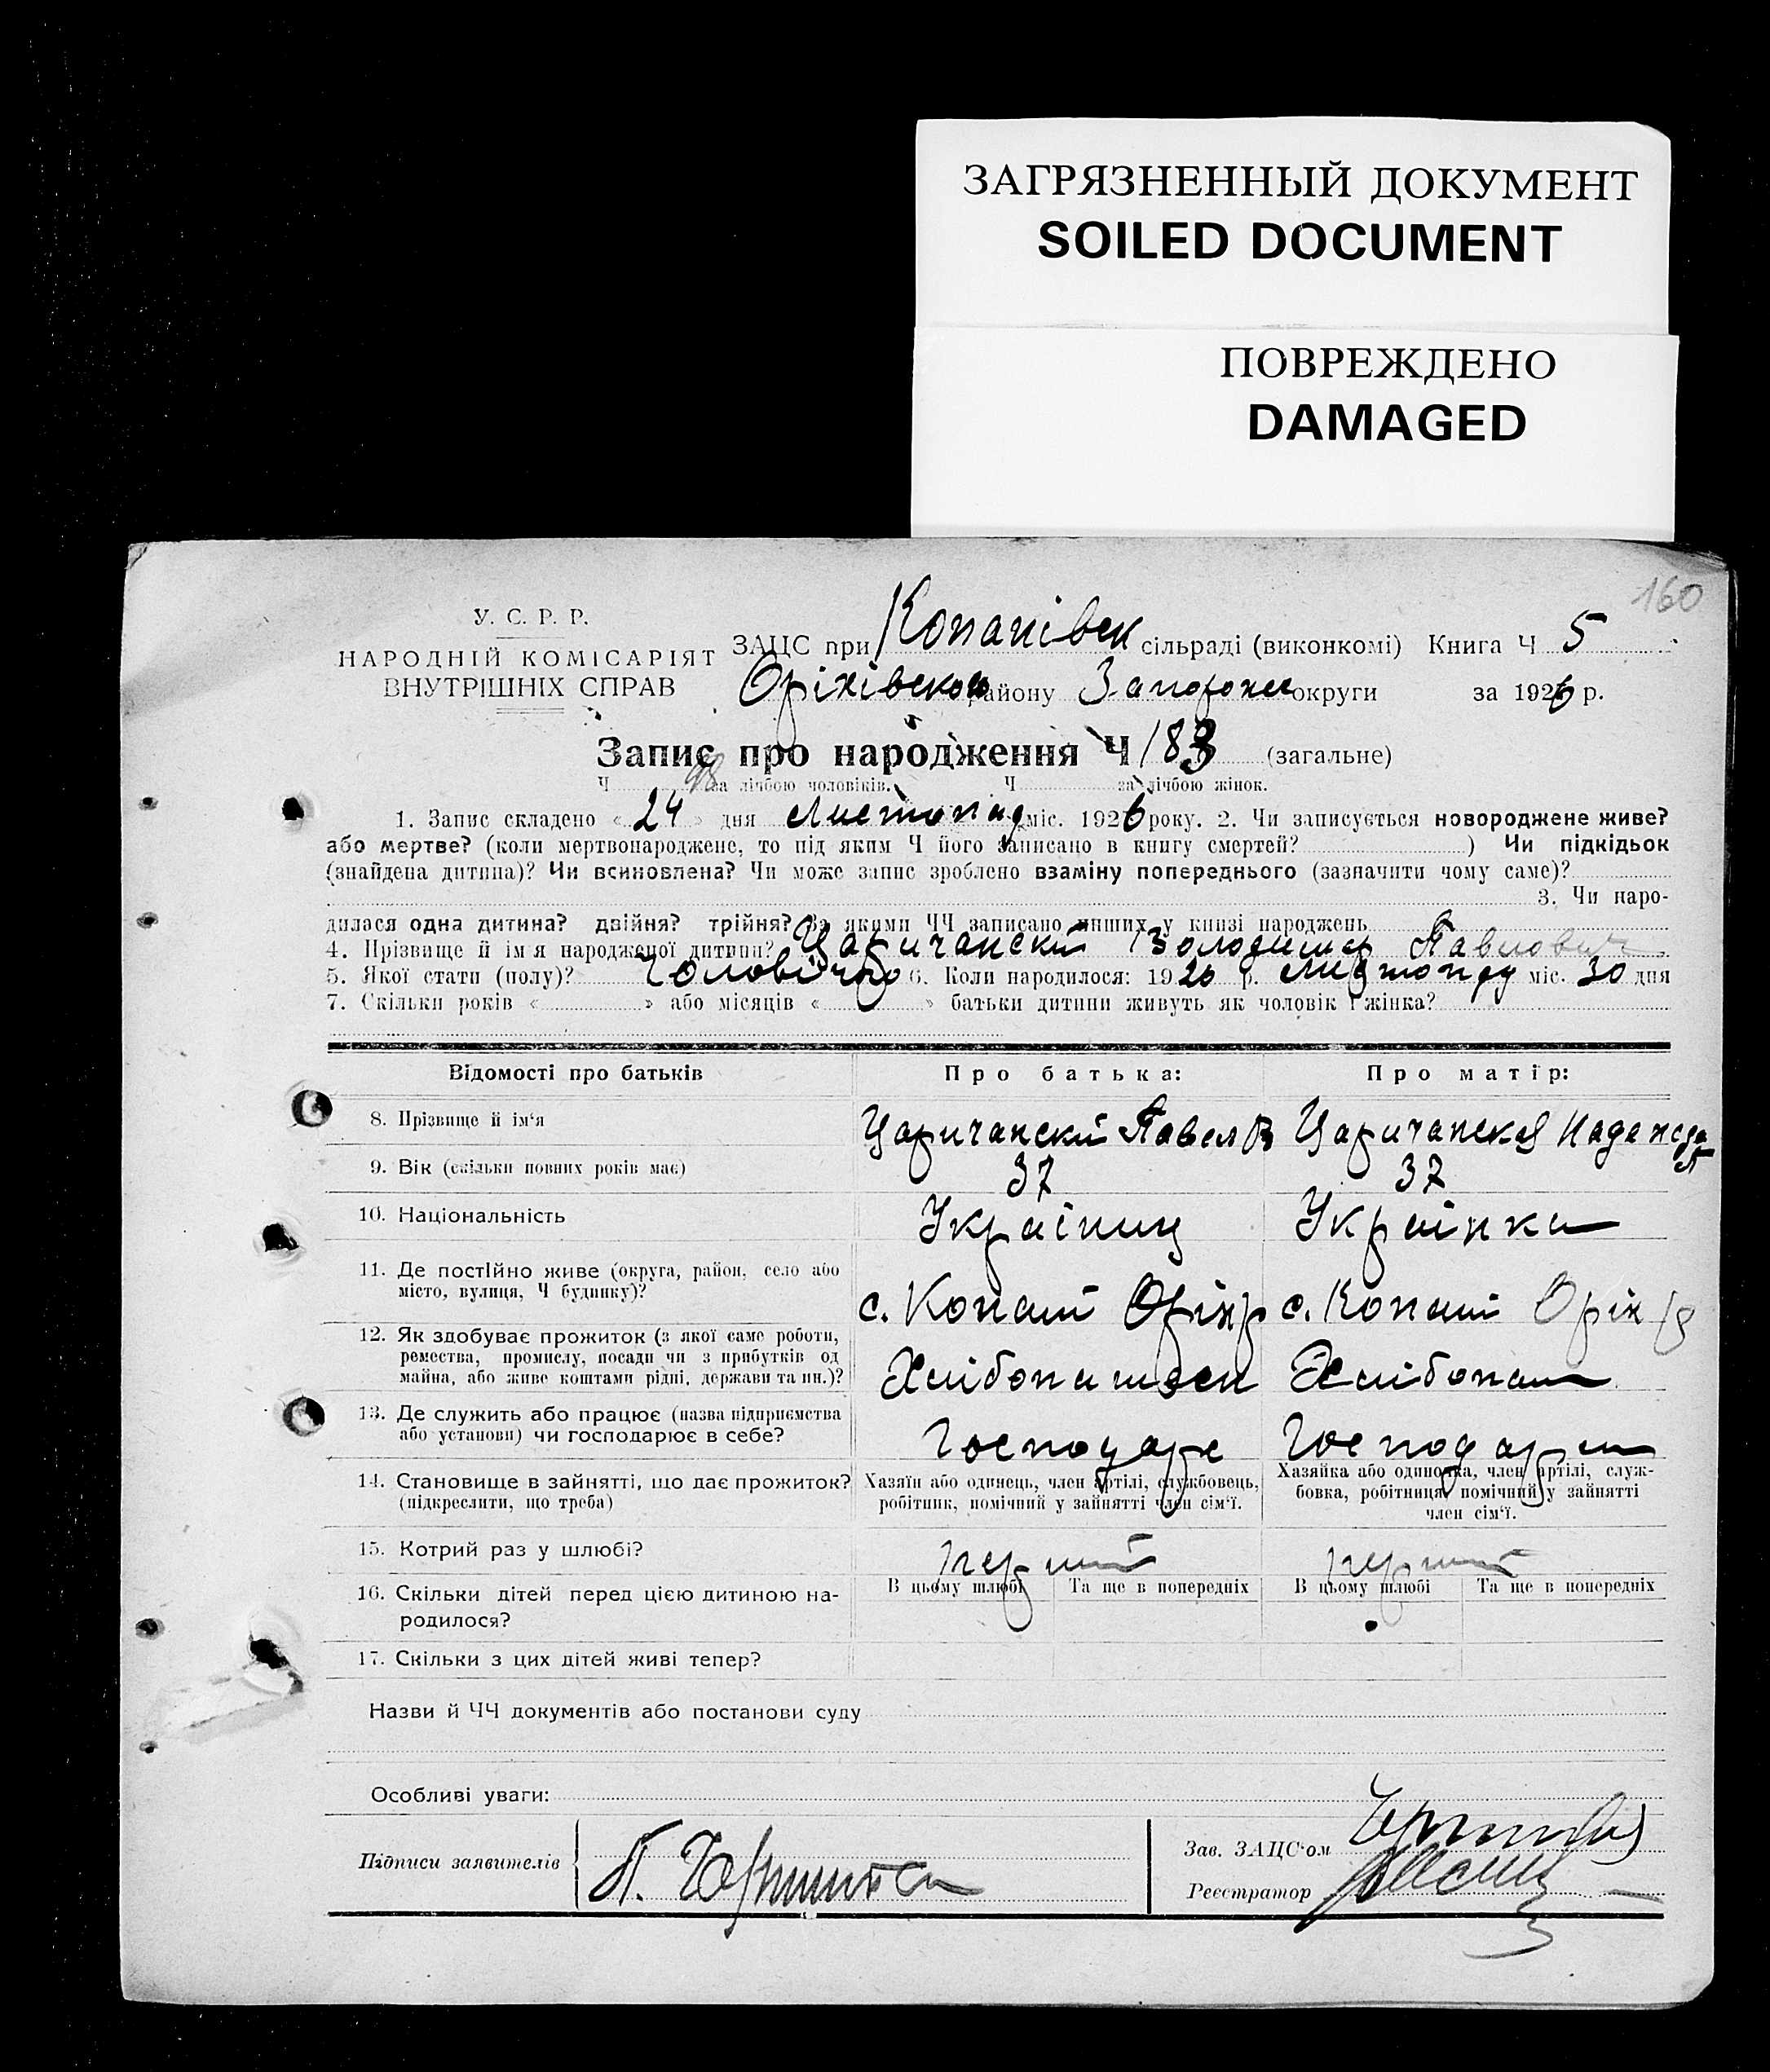 ЗАГРЯЗНЕННЫЙ ДОКУМЕНТ
SOILED DOCUMENT
ПОВРЕЖДЕНО
DAMAGED
160
У. С. Р. Р.
НАРОДНІЙ КОМІСАРІЯТ
ВНУТРІШНІХ СПРАВ
ЗАЦС при Копанівск сільраді (виконкомі) Книга Ч 5
Оріхівского району Запоріжск округи за 1926 р.
Запис про народження Ч 183 (загальне)
Ч 98 за лічбою чоловіків. Ч за лічбою жінок.
1. Запис складено « 24 » дня Листопад міс. 1926 року. 2. Чи записується новороджене живе?
або мертве? (коли мертвонароджене, то під яким Ч його записано в книгу смертей? ) Чи підкідьок
(знайдена дитина)? Чи всиновлена? Чи може запис зроблено взаміну попереднього (зазначити чому саме)?
3. Чи наро-
дилася одна дитина? двійня? трійня? За якими ЧЧ записано инших у книзі народжень
4. Прізвище й ім'я народженої дитини? Царичанский Володимир Павлович
5. Якої стати (полу)? Чоловічого 6. Коли народилося: 1920 р. Листопад міс. 30 дня
7. Скільки років « » або місяців « » батьки дитини живуть як чоловік і жінка?
Відомості про батьків Про батька: Про матір:
8. Прізвище й ім'я Царичанский Павел В Царичанская Надежда П
9. Вік (скільки повних років має) 37 37
10. Національність Українец Українка
11. Де постійно живе (округа, район, село або
місто, вулиця, Ч будинку)? с. Копані Оріх р с. Копані Оріх р
12. Як здобуває прожиток (з якої саме роботи,
ремества, промислу, посади чи з прибутків од
майна, або живе коштами рідні, держави та ин.)? Хлібопашест Хлібопаш
13. Де служить або працює (назва підприємства
або установи) чи господарює в себе? Господарє Господарка
14. Становище в зайнятті, що дає прожиток?
(підкреслити, що треба)
Хазяїн або одинець, член артілі, службовець,
робітник, помічний у зайнятті член сім'ї.
Хазяйка або одиночка, член артілі, служ-
бовка, робітниця, помічний у зайнятті
член сім'ї.
15. Котрий раз у шлюбі? перший перший
16. Скільки дітей перед цією дитиною на-
родилося?
В цьому шлюбі Та ще в попередніх В цьому шлюбі Та ще в попередніх
17. Скільки з цих дітей живі тепер?
Назви й ЧЧ документів або постанови суду
Особливі уваги:
Підписи заявителів
Зав. ЗАЦС'ом
Реєстратор